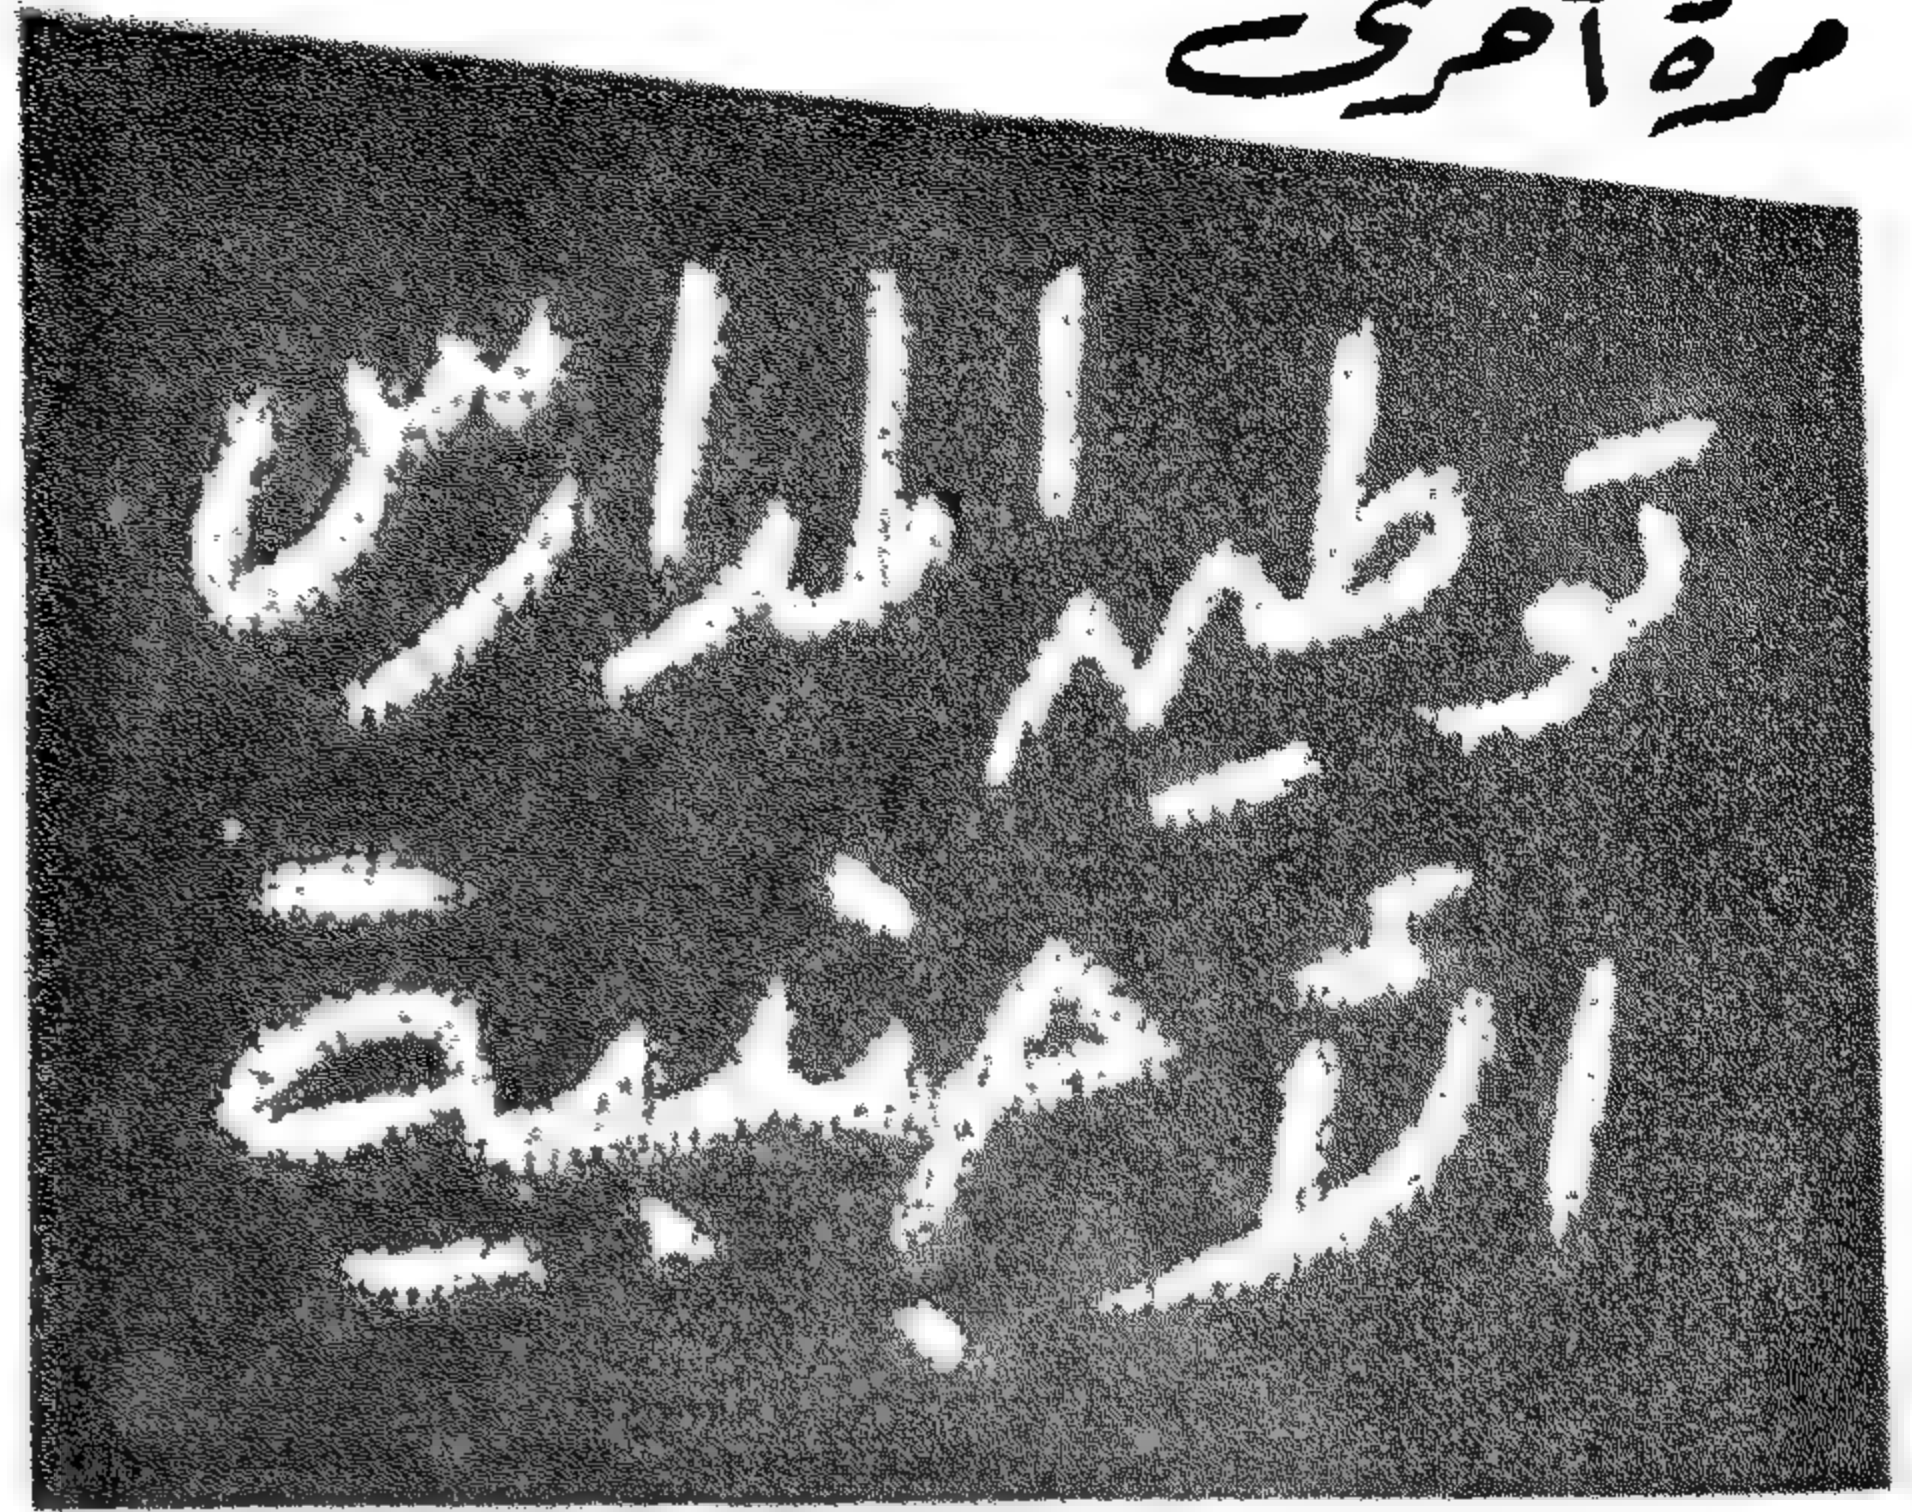 مرة أخرى
المدارس
الأجنبية